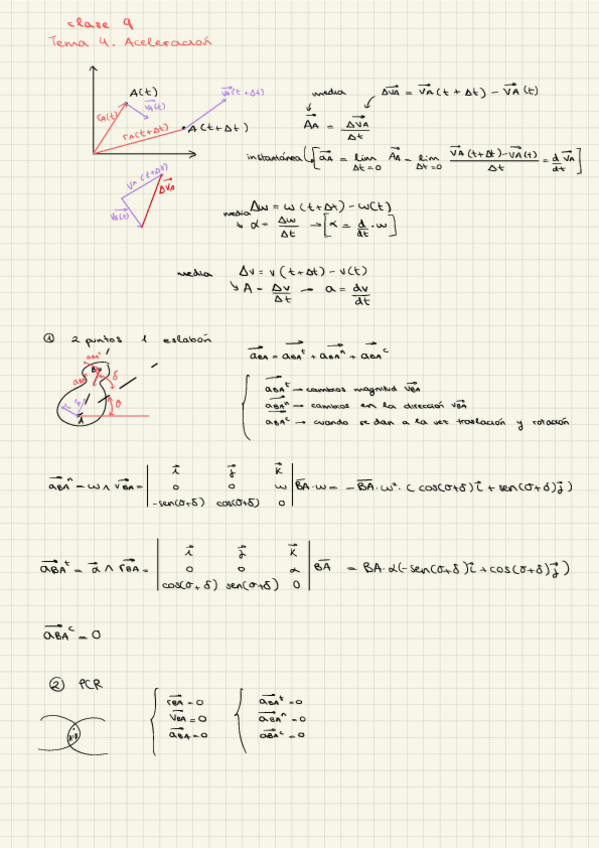 clase 9
Tema 4. Aceleración
A(t)
vA(t)
vA(t+Δt)
rA(t)
rA(t+Δt)
A(t+Δt)
vA(t+Δt)
vA(t)
ΔvA
media ΔvA = vA(t+Δt) - vA(t)
AA = ΔvA / Δt
instantánea [aA = lim Δt=0 AA = lim Δt=0 (vA(t+Δt)-vA(t)) / Δt = d/dt vA]
Δw = w(t+Δt) - w(t)
media α = Δw/Δt → [α = d/dt · w]
media Δv = v(t+Δt) - v(t)
A = Δv/Δt → a = dv/dt
① 2 puntos 1 eslabón
aBA = aBA^t + aBA^n + aBA^c
B
δ
θ
A
aBA^t → cambios magnitud vBA
aBA^n → cambios en la dirección vBA
aBA^c → cuando se dan a la vez traslación y rotación
aBA^n = w ∧ vBA = | i j k | 0 0 w | -sen(σ+δ) cos(σ+δ) 0 | BA·w = -BA·w²·(cos(σ+δ)i + sen(σ+δ)j)
aBA^t = α ∧ rBA = | i j k | 0 0 α | cos(σ+δ) sen(σ+δ) 0 | BA = BA·α(-sen(σ+δ)i + cos(σ+δ)j)
aBA^c = 0
② PCR
rBA = 0 aBA^t = 0
vBA = 0 aBA^n = 0
aBA = 0 aBA^c = 0